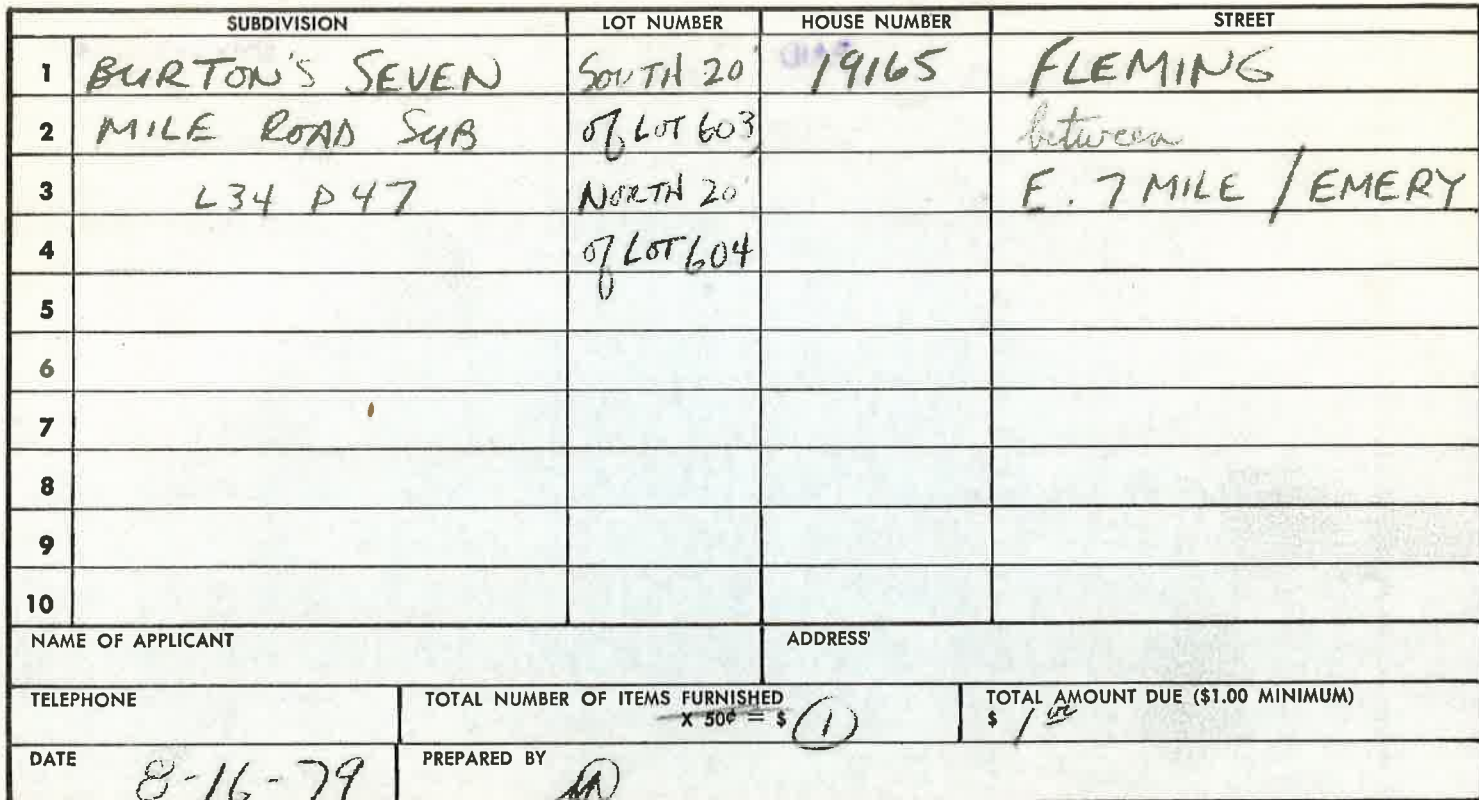 SUBDIVISION LOT NUMBER HOUSE NUMBER STREET
1 BURTON'S SEVEN SOUTH 20' 19165 FLEMING
2 MILE ROAD SUB of LOT 603 between
3 L34 P47 NORTH 20' E. 7 MILE / EMERY
4 of LOT 604
5
6
7
8
9
10
NAME OF APPLICANT ADDRESS
TELEPHONE TOTAL NUMBER OF ITEMS FURNISHED TOTAL AMOUNT DUE ($1.00 MINIMUM)
X 50¢ = $ 1 $ 1 00
DATE 8-16-79 PREPARED BY